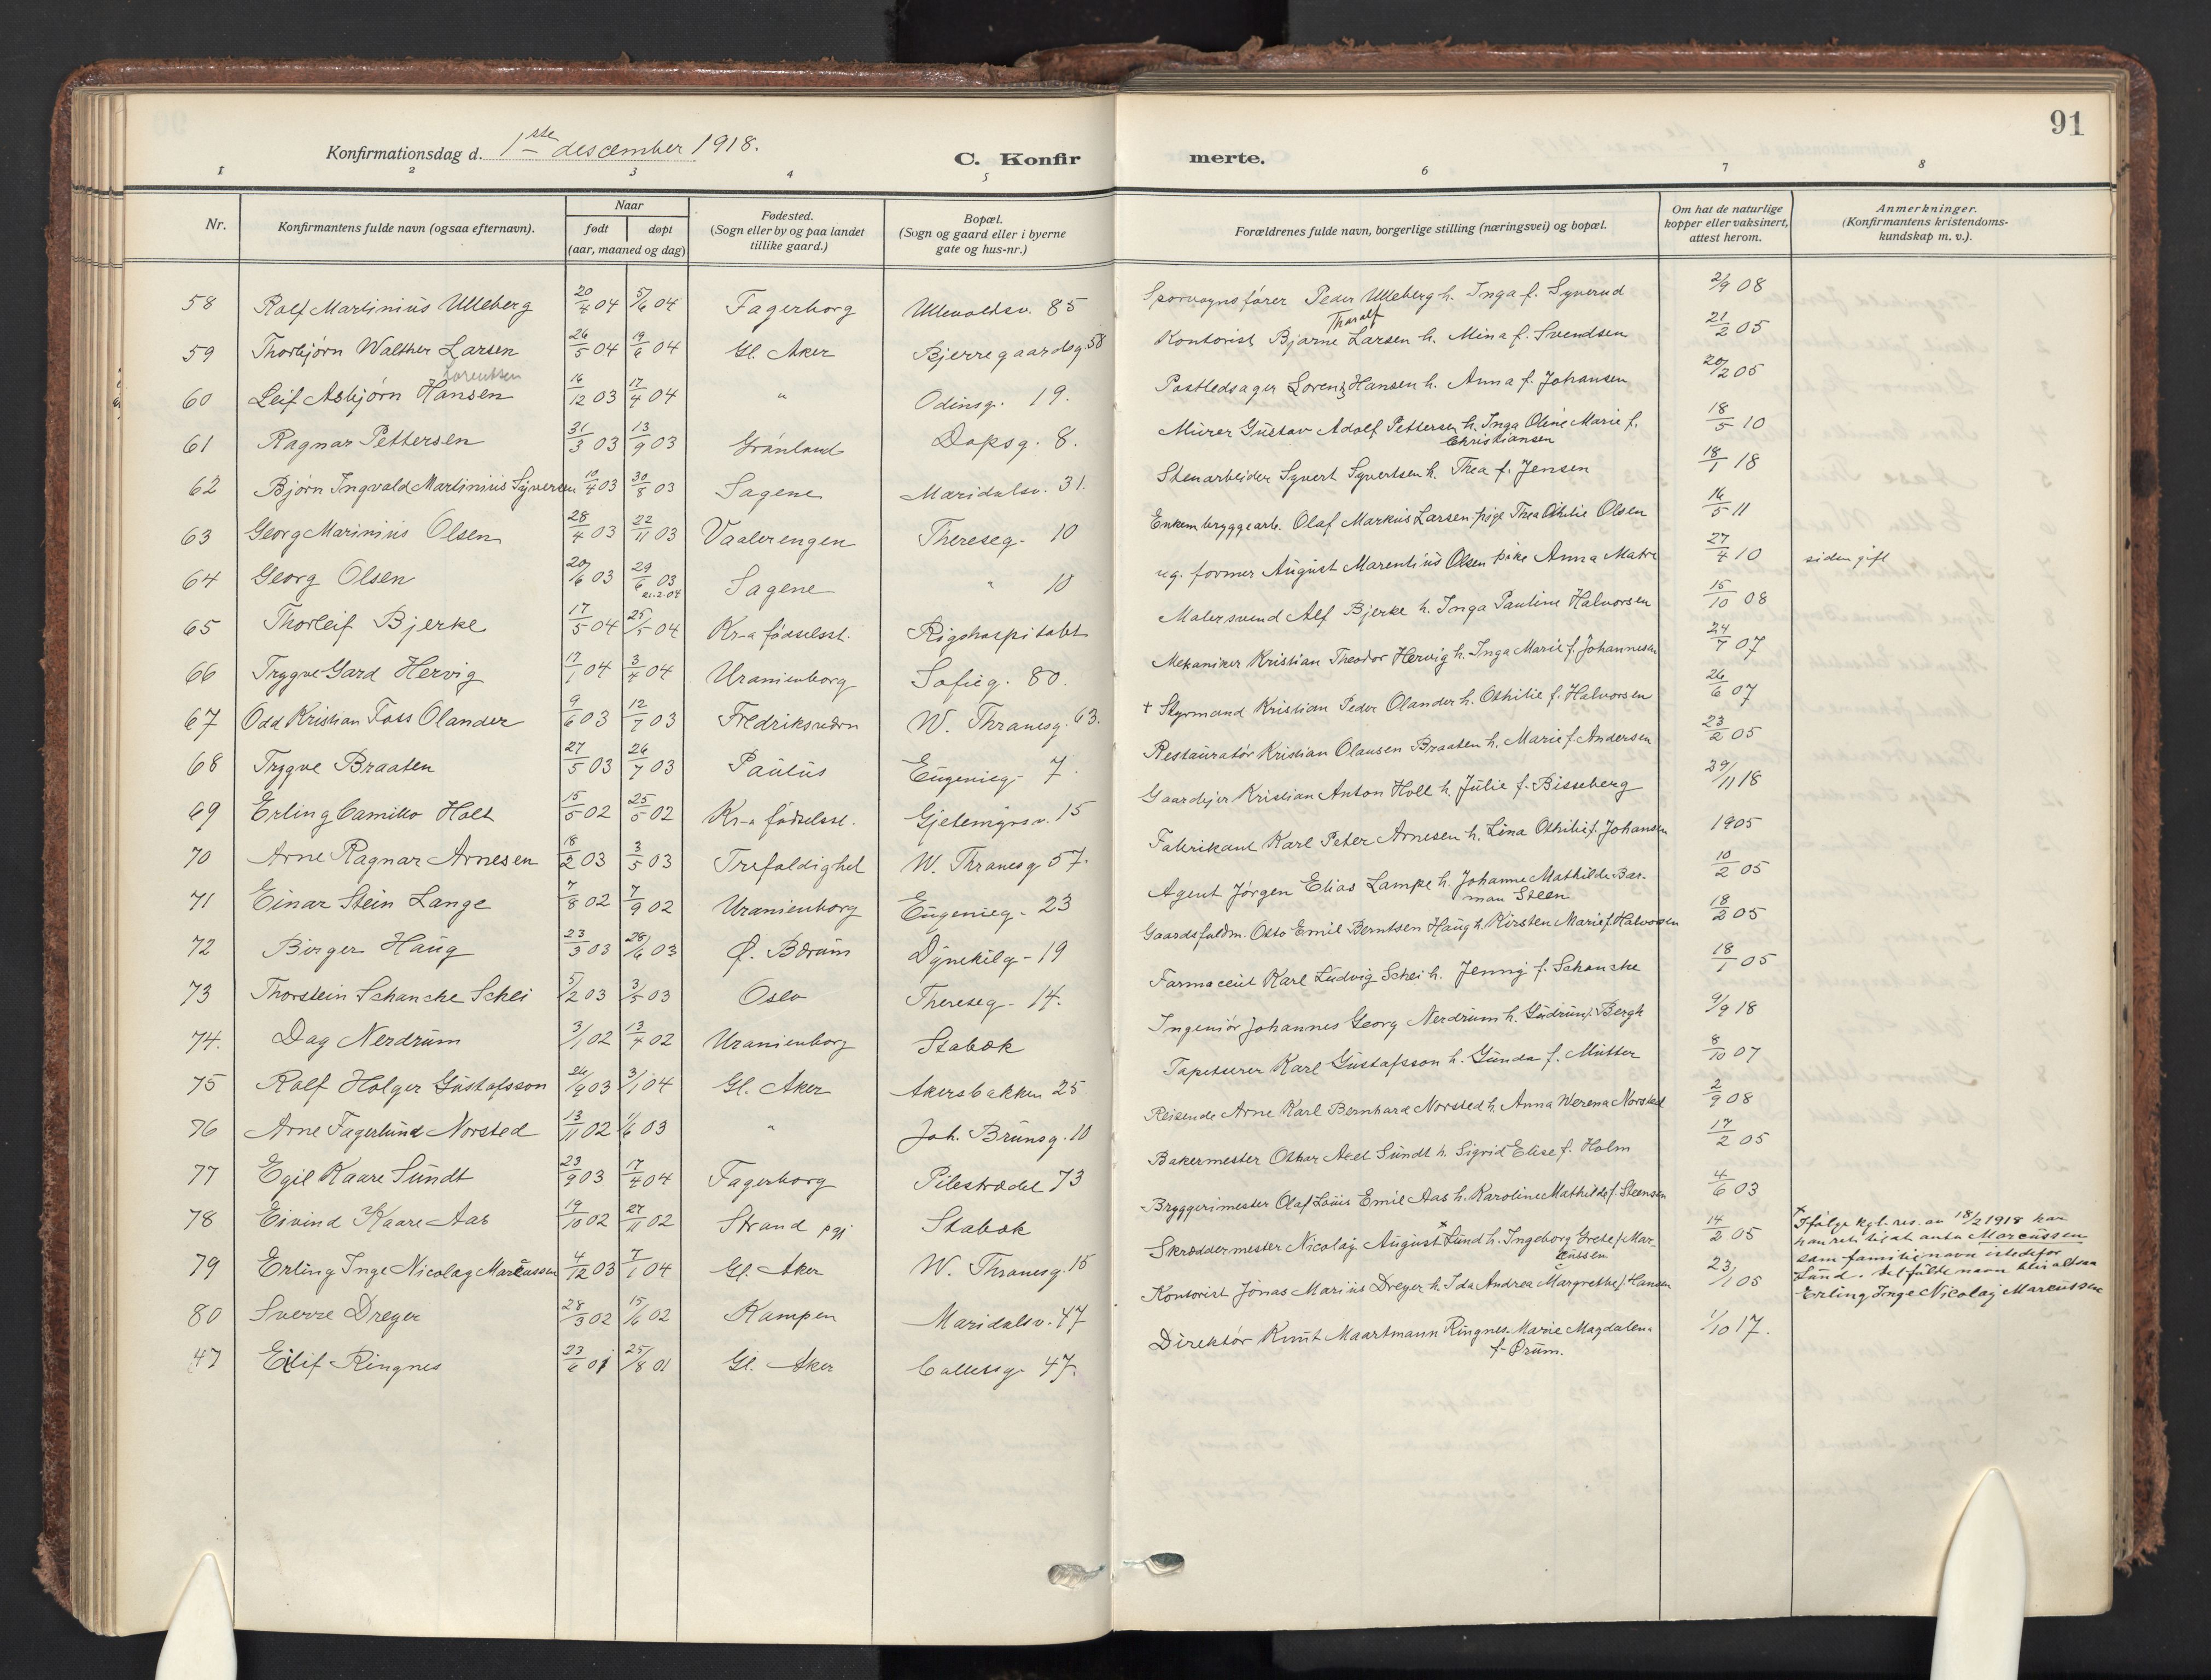 91
Konfirmationsdag d. 1ste descember 1918.
C. Konfir merte.
1 2 3 4 5 6 7 8
Nr.
Konfirmantens fulde navn (ogsaa efternavn).
Naar
født døpt
(aar, maaned og dag)
Fødested.
(Sogn eller by og paa landet
tillike gaard.)
Bopæl.
(Sogn og gaard eller i byerne
gate og hus-nr.)
Forældrenes fulde navn, borgerlige stilling (næringsvei) og bopæl.
Om hat de naturlige
kopper eller vaksinert,
attest herom.
Anmerkninger.
(Konfirmantens kristendoms-
kundskap m. v.).
58 Rolf Martinius Ulleberg 20/4 04 5/6 04 Fagerborg Ullevoldsv. 85 Sporvognsfører Peder Ulleberg h. Inga f. Syverud 2/9 08
Tharalf
59 Thorbjørn Walther Larsen 26/5 04 19/6 04 Gl. Aker Bjerregaardsg. 58 Kontorist Bjarne Larsen h. Mina f. Svendsen 21/2 05
Lorentsen
60 Leif Asbjørn Hansen 16/12 03 17/4 04 " Odinsg. 19. Postledsager Lorenz Hansen h. Anna f. Johansen 20/2 05
61 Ragnar Pettersen 31/3 03 13/9 03 Grønland Dopsg. 8. Murer Gustav Adolf Pettersen h. Inga Oline Marie f.
Christiansen 18/5 10
62 Bjørn Ingvald Martinius Syversen 10/4 03 30/8 03 Sagene Maridalsv. 31. Stenarbeider Syvert Syvertsen h. Thea f. Jensen 18/1 18
63 Georg Marinius Olsen 28/4 03 22/11 03 Vaalerengen Thereseg. 10 Enkem. bryggearb. Olaf Markus Larsen. pige Thea Othilie Olsen 16/5 11
64 Georg Olsen 20/6 03 29/6 03 Sagene " 10 ug. former August Marentius Olsen pike Anna 27/4 10 siden gift
21.2.04
65 Thorleif Bjerke 17/5 04 25/5 04 Kr-a fødselsst. Rigshospitalet Malersvend Alf Bjerke h. Inga Pauline Halvorsen 15/10 08
66 Trygve Gard Hervig 17/1 04 3/4 04 Uranienborg Sofieg. 80. Mekaniker Kristian Theodor Hervig h. Inga Marie f. Johannesen 24/7 07
67 Odd Kristian Foss Olander 9/6 03 12/7 03 Fredriksværn W. Thranesg. 63. + Styrmand Kristian Peder Olander h. Othilie f. Halvorsen 26/6 07
68 Trygve Braaten 27/5 03 26/7 03 Paulus Eugenieg. 7. Restauratør Kristian Olausen Braaten h. Marie f. Andersen 23/2 05
69 Erling Camillo Holt 15/5 02 25/5 02 Kr-a fødselsst. Gjetemyrsv. 15 Gaardejer Kristian Anton Holt h. Julie f. Bisseberg 29/11 18
70 Arne Ragnar Arnesen 18/2 03 3/5 03 Trefoldighet W. Thranesg 57. Fabrikant Karl Peter Arnesen h. Lina Othilie f. Johansen 1905
71 Einar Stein Lange 7/8 02 7/9 02 Uranienborg Eugenieg. 23 Agent Jørgen Elias Lampe h. Johanne Mathilde Bar-
man Steen 10/2 05
72 Birger Haug 23/3 03 28/6 03 Ø. Bærum Dynekilg. 19 Gaardsfuldm. Otto Emil Berntsen Haug h. Kirsten Marie f. Halvorsen 18/2 05
73 Thorstein Schanche Schei 5/2 03 3/5 03 Oslo Thereseg. 14. Farmaceut Karl Ludvig Schei h. Jenny f. Schanche 18/1 05
74. Dag Nerdrum 3/1 02 13/4 02 Uranienborg Stabæk Ingeniør Johannes Georg Nerdrum h. Gudrun f. Bergh 9/9 18
75 Rolf Holger Gustafsson 26/9 03 3/1 04 Gl. Aker Akersbakken 25 Tapetserer Karl Gustafsson h. Gunda f. Mutter 8/10 07
76 Arne Fagerlund Norsted 13/11 02 1/6 03 " Joh. Brunsg. 10 Reisende Arne Karl Bernhard Norsted h. Anna Werena Norsted 2/9 08
77 Egil Kaare Sundt 23/9 03 17/4 04 Fagerborg Pilestrædet 73 Bakermester Othar Axel Sundt h. Sigrid Elise f. Holm 17/2 05
78 Eivind Kaare Aas 19/10 02 27/11 02 Strand pgj Stabæk Bryggerimester Olaf Louis Emil Aas h. Karoline Mathilde f. Steensen 4/6 03
79 Erling Inge Nicolay Marcussen 4/12 03 7/1 04 Gl. Aker W. Thranesg. 15 Skræddermester Nicolay August × Lund h. Ingeborg Grete f. Mar-
cussen 14/2 05
× Ifølge kgl. res. av 18/2 1918 har
han ret til at anta Marcussen
som familienavn istedefor
Lund. Det fulde navn blir altsaa
Erling Inge Nicolay Marcussen
80 Sverre Dreyer 28/3 02 15/6 02 Kampen Maridalsv. 47 Kontorist Jonas Marius Dreyer h. Ida Andrea Margrethe f. Hansen 23/1 05
47 Eilif Ringnes 23/6 01 25/8 01 Gl. Aker Calletsg. 47. Direktør Knut Maartmann Ringnes. Marie Magdalena
f. Ørum. 1/10 17.